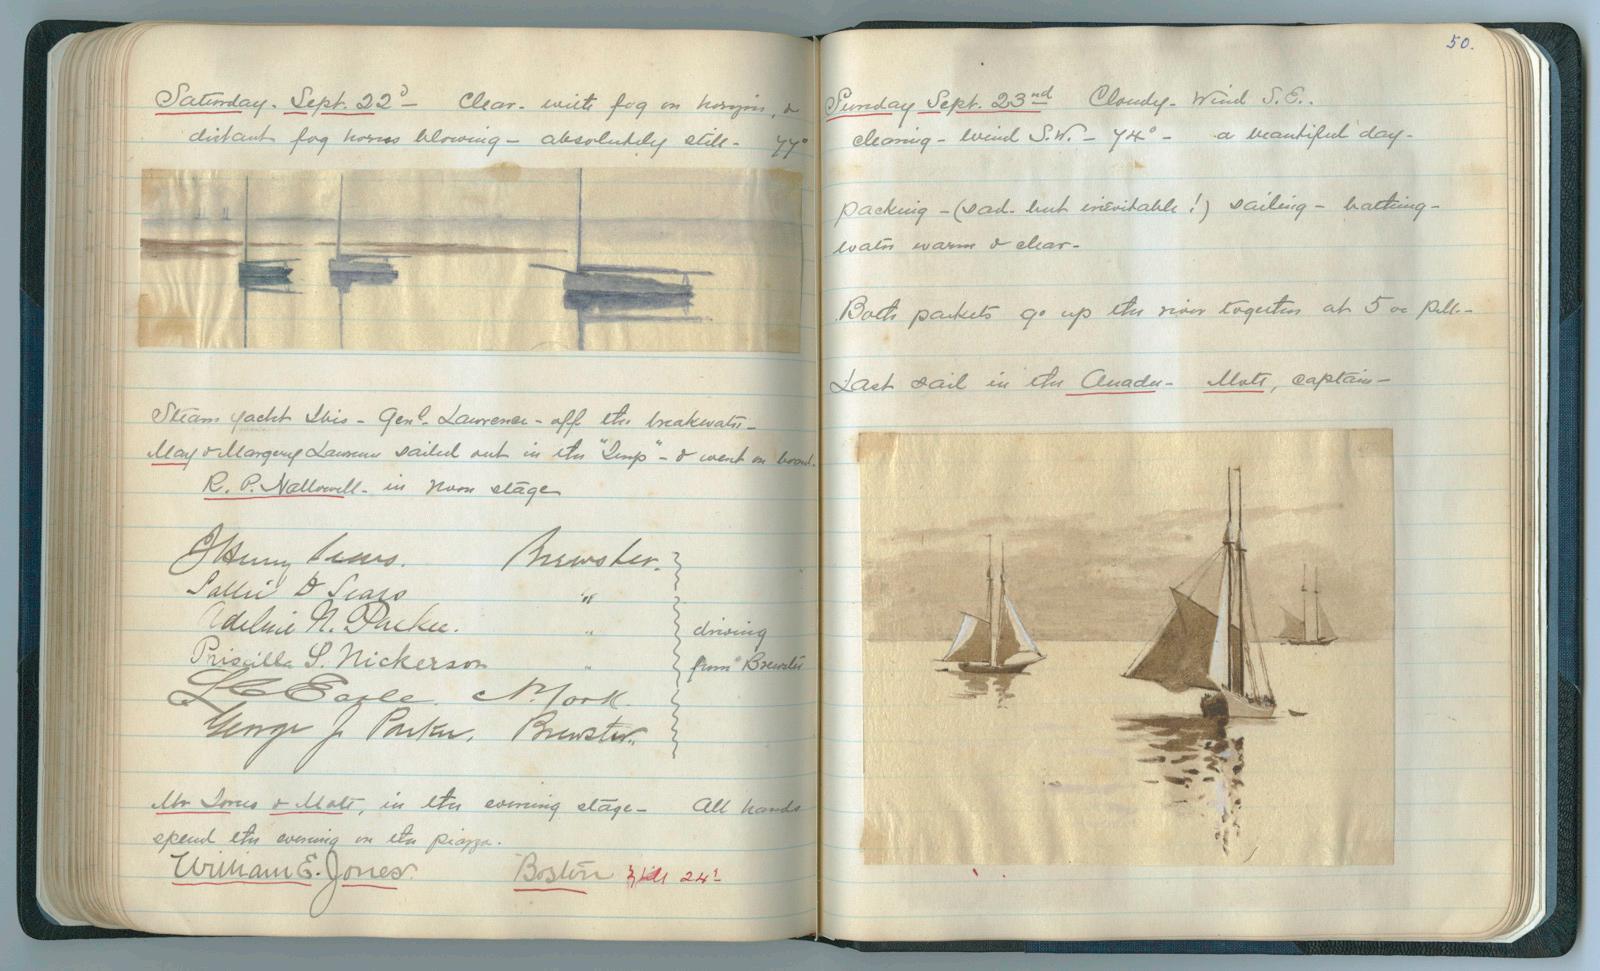 Saturday. Sept. 22d — Clear. with fog on horizon, &
distant fog horns blowing — absolutely still. 77°
Steam yacht Ibis — Genl. Lawrence — off the breakwater —
May & Margery Lawrence sailed out in the "Imp" — & went on board.
R. P. Hallowell. in noon stage
J Henry Sears. Brewster.
Sallie D Sears "
Adeline N. Parker. " driving
Priscilla S. Nickerson " from Brewster
L C Eagle. N. York.
George J Parker, Brewster.
Mr Jones & Matt, in the evening stage — All hands
spend the evening on the piazza.
William E. Jones. Boston till 24th
50.
Sunday Sept. 23nd Cloudy — Wind S.E..
clearing — Wind S.W. — 74° — a beautiful day —
packing — (sad. but inevitable!) sailing — bathing —
water warm & clear —
Both packets go up the river together at 5 oc P.M. —
Last sail in the — Matt, captain —